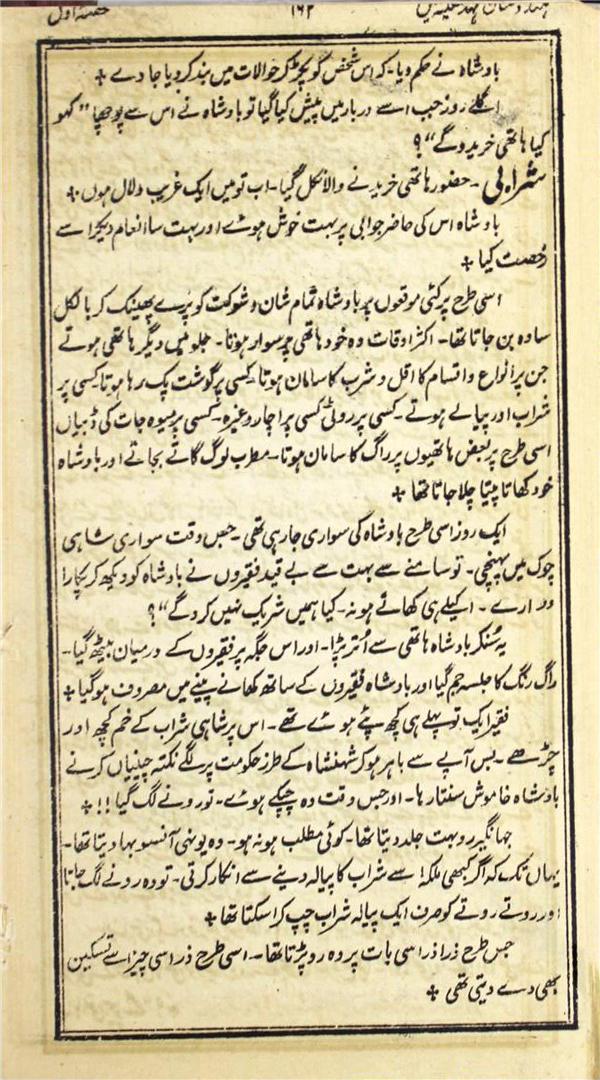 حصہ اول ۱۶۲ ہندوستان عہد مغلیہ میں
بادشاہ نے حکم دیا۔ کہ اس شخص کو پکڑ کر حوالات میں بند کر دیا جاوے ۔
اگلے روز جب اسے دربار میں پیش کیا گیا تو بادشاہ نے اس سے پوچھا "کہو
کیا ہاتھی خریدو گے"؟
شرابی ۔ حضور ہاتھی خریدنے والا نکل گیا۔ اب تو میں ایک غریب دلال ہوں ۔
بادشاہ اس کی حاضر جوابی پر بہت خوش ہوئے اور بہت سا انعام دیکر اسے
رخصت کیا ۔
اسی طرح پر کئی موقعوں پر بادشاہ تمام شان و شوکت کو پرے پھینک کر بالکل
سادہ بن جاتا تھا۔ اکثر اوقات وہ خود ہاتھی پر سوار ہوتا۔ جلو میں دیگر ہاتھی ہوتے
جن پر انواع و اقسام کا اقل و شرب کا سامان ہوتا۔ کسی پر گوشت پک رہا ہوتا کسی پر
شراب اور پیالے ہوتے۔ کسی پر روٹی کسی پر اچار وغیرہ۔ کسی پر میوہ جات کی ڈبیاں
اسی طرح پر بعض ہاتھیوں پر راگ کا سامان ہوتا۔ مطرب لوگ گاتے بجاتے اور بادشاہ
خود کھاتا پیتا چلا جاتا تھا ۔
ایک روز اسی طرح بادشاہ کی سواری جا رہی تھی ۔ جس وقت سواری شاہی
چوک میں پہنچی۔ تو سامنے سے بہت سے بے قید فقیروں نے بادشاہ کو دیکھ کر پکارا
ارے ۔ اکیلے ہی کھاتے ہو نہ۔ کیا ہمیں شریک نہیں کرو گے"؟
یہ سُنکر بادشاہ ہاتھی سے اُتر پڑا۔ اور اس جگہ پر فقیروں کے درمیان بیٹھ گیا۔
راگ رنگ کا جلسہ جم گیا اور بادشاہ فقیروں کے ساتھ کھانے پینے میں مصروف ہو گیا ۔
فقیر ایک تو پہلے ہی کچھ پئے ہوئے تھے۔ اس پر شاہی شراب کے خم کچھ اور
چڑھے۔ بس آپے سے باہر ہو کر شہنشاہ کے طرز حکومت پر لگے نکتہ چینیاں کرنے
بادشاہ خاموش سنتا رہا۔ اور جس وقت وہ چپکے ہوئے۔ تو رونے لگ گیا !! ۔
جہانگیر رو بہت جلد دیتا تھا۔ کوئی مطلب ہو نہ ہو۔ وہ یونہی آنسو بہا دیتا تھا۔
یہاں تک کہ اگر کبھی ملکہ اسے شراب کا پیالہ دینے سے انکار کرتی۔ تو وہ رونے لگ جاتا
اور روتے روتے کو صرف ایک پیالہ شراب چپ کرا سکتا تھا ۔
جس طرح ذرا ذرا سی بات پر وہ رو پڑتا تھا۔ اسی طرح ذرا سی چیز اسے تسکین
بھی دے دیتی تھی ۔